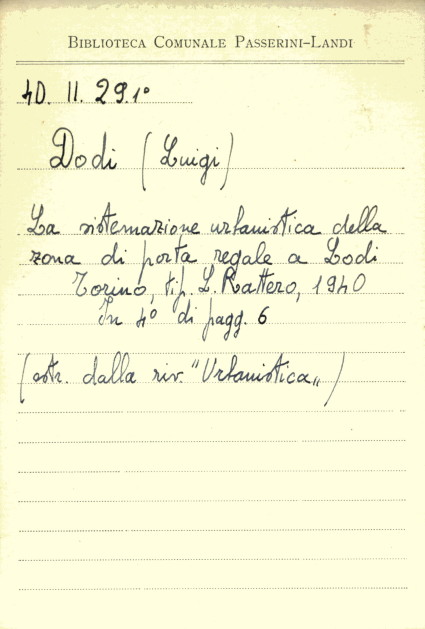 BIBLIOTECA COMUNALE PASSERINI-LANDI
4D. II. 29.1°
Dodi (Luigi)
La sistemazione urbanistica della
zona di porta regale a Lodi
Torino, tip. L. Rattero, 1940
In 4° di pagg. 6
(estr. dalla riv. "Urbanistica„)